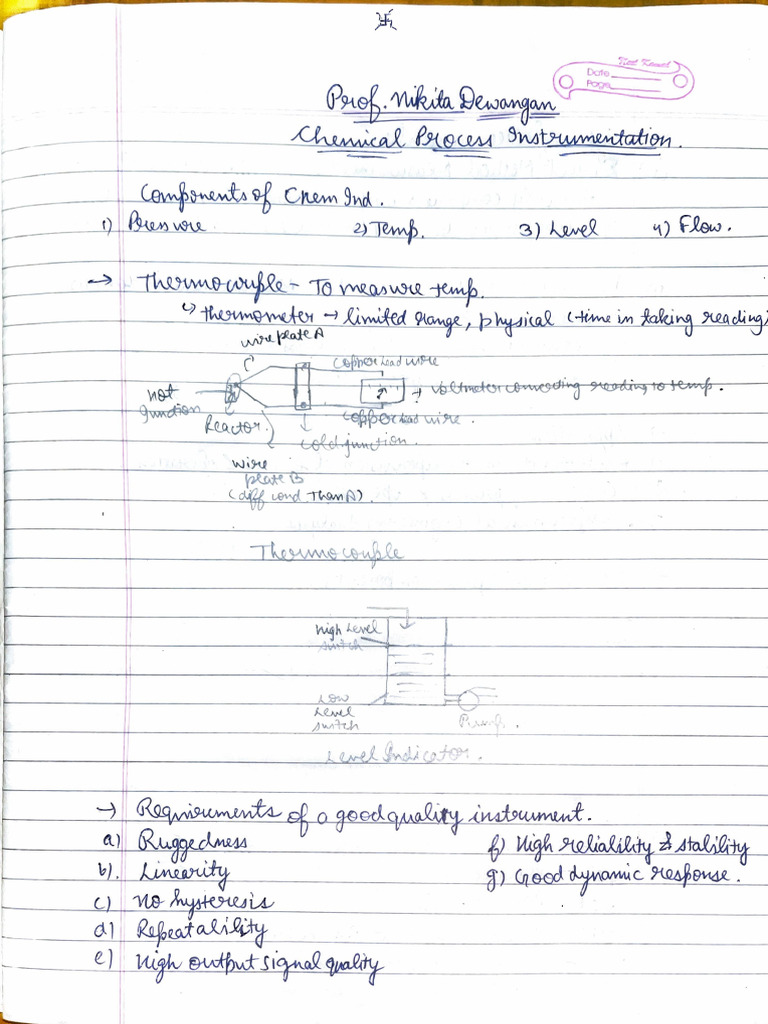 卐
Neel Kamal
Date
Page
Prof. Nikita Dewangan
Chemical Process Instrumentation.
Components of Chem Ind.
1) Pressure 2) Temp. 3) Level 4) Flow.
→ Thermocouple - To measure temp.
↳ thermometer → limited range, physical (time in taking reading)
wire plate A
copper lead wire
hot junction
→ voltmeter converting reading to temp.
Reactor
copper lead wire.
cold junction.
wire plate B
(diff cond Than A).
Thermocouple
High Level switch
Low Level switch
Pump.
Level Indicator.
→ Requirements of a good quality instrument.
a) Ruggedness f) High reliability & stability
b). Linearity g) Good dynamic response.
c) No hysteresis
d) Repeatability
e) High output signal quality